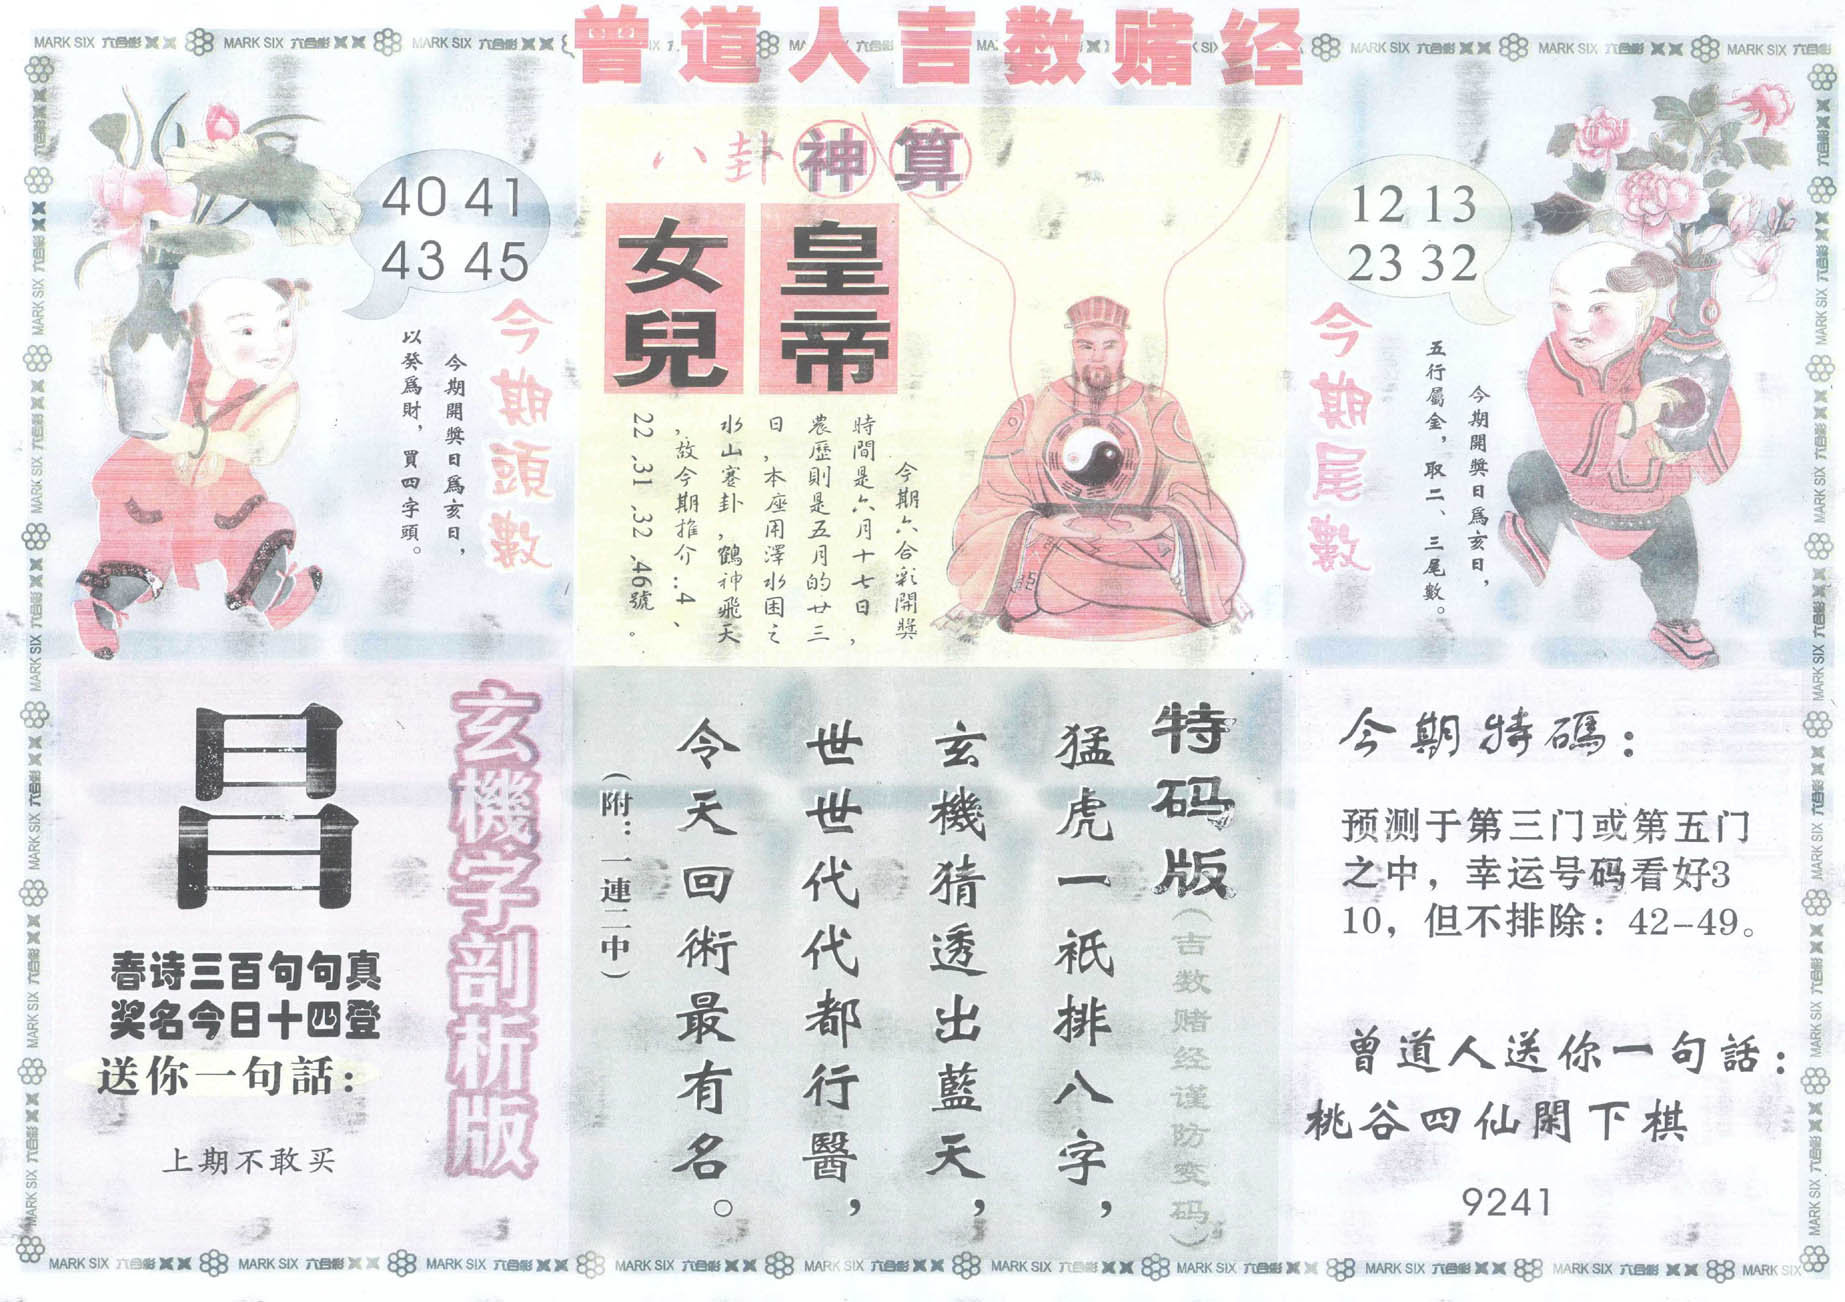 曾道人吉数赌经
MARK SIX 六合彩
40 41
43 45
今期頭數
今期開獎日爲亥日，
以癸爲財，買四字頭。
八卦神算
皇帝
女兒
今期六合彩開獎
時間是六月十七日，
農歷則是五月的廿三
日，本座用澤水困之
水山蹇卦，鶴神飛天
，故今期推介：4、
22.31.32.46號。
12 13
23 32
今期尾數
今期開獎日爲亥日，
五行屬金，取二、三尾數。
玄機字剖析版
昌
春诗三百句句真
奖名今日十四登
送你一句話：
上期不敢买
特码版
（吉数赌经谨防变码）
猛虎一祇排八字，
玄機猜透出藍天，
世世代代都行醫，
令天回術最有名。
（附：一連二中）
今期特碼：
预测于第三门或第五门
之中，幸运号码看好3
10，但不排除：42-49。
曾道人送你一句話：
桃谷四仙閑下棋
9241